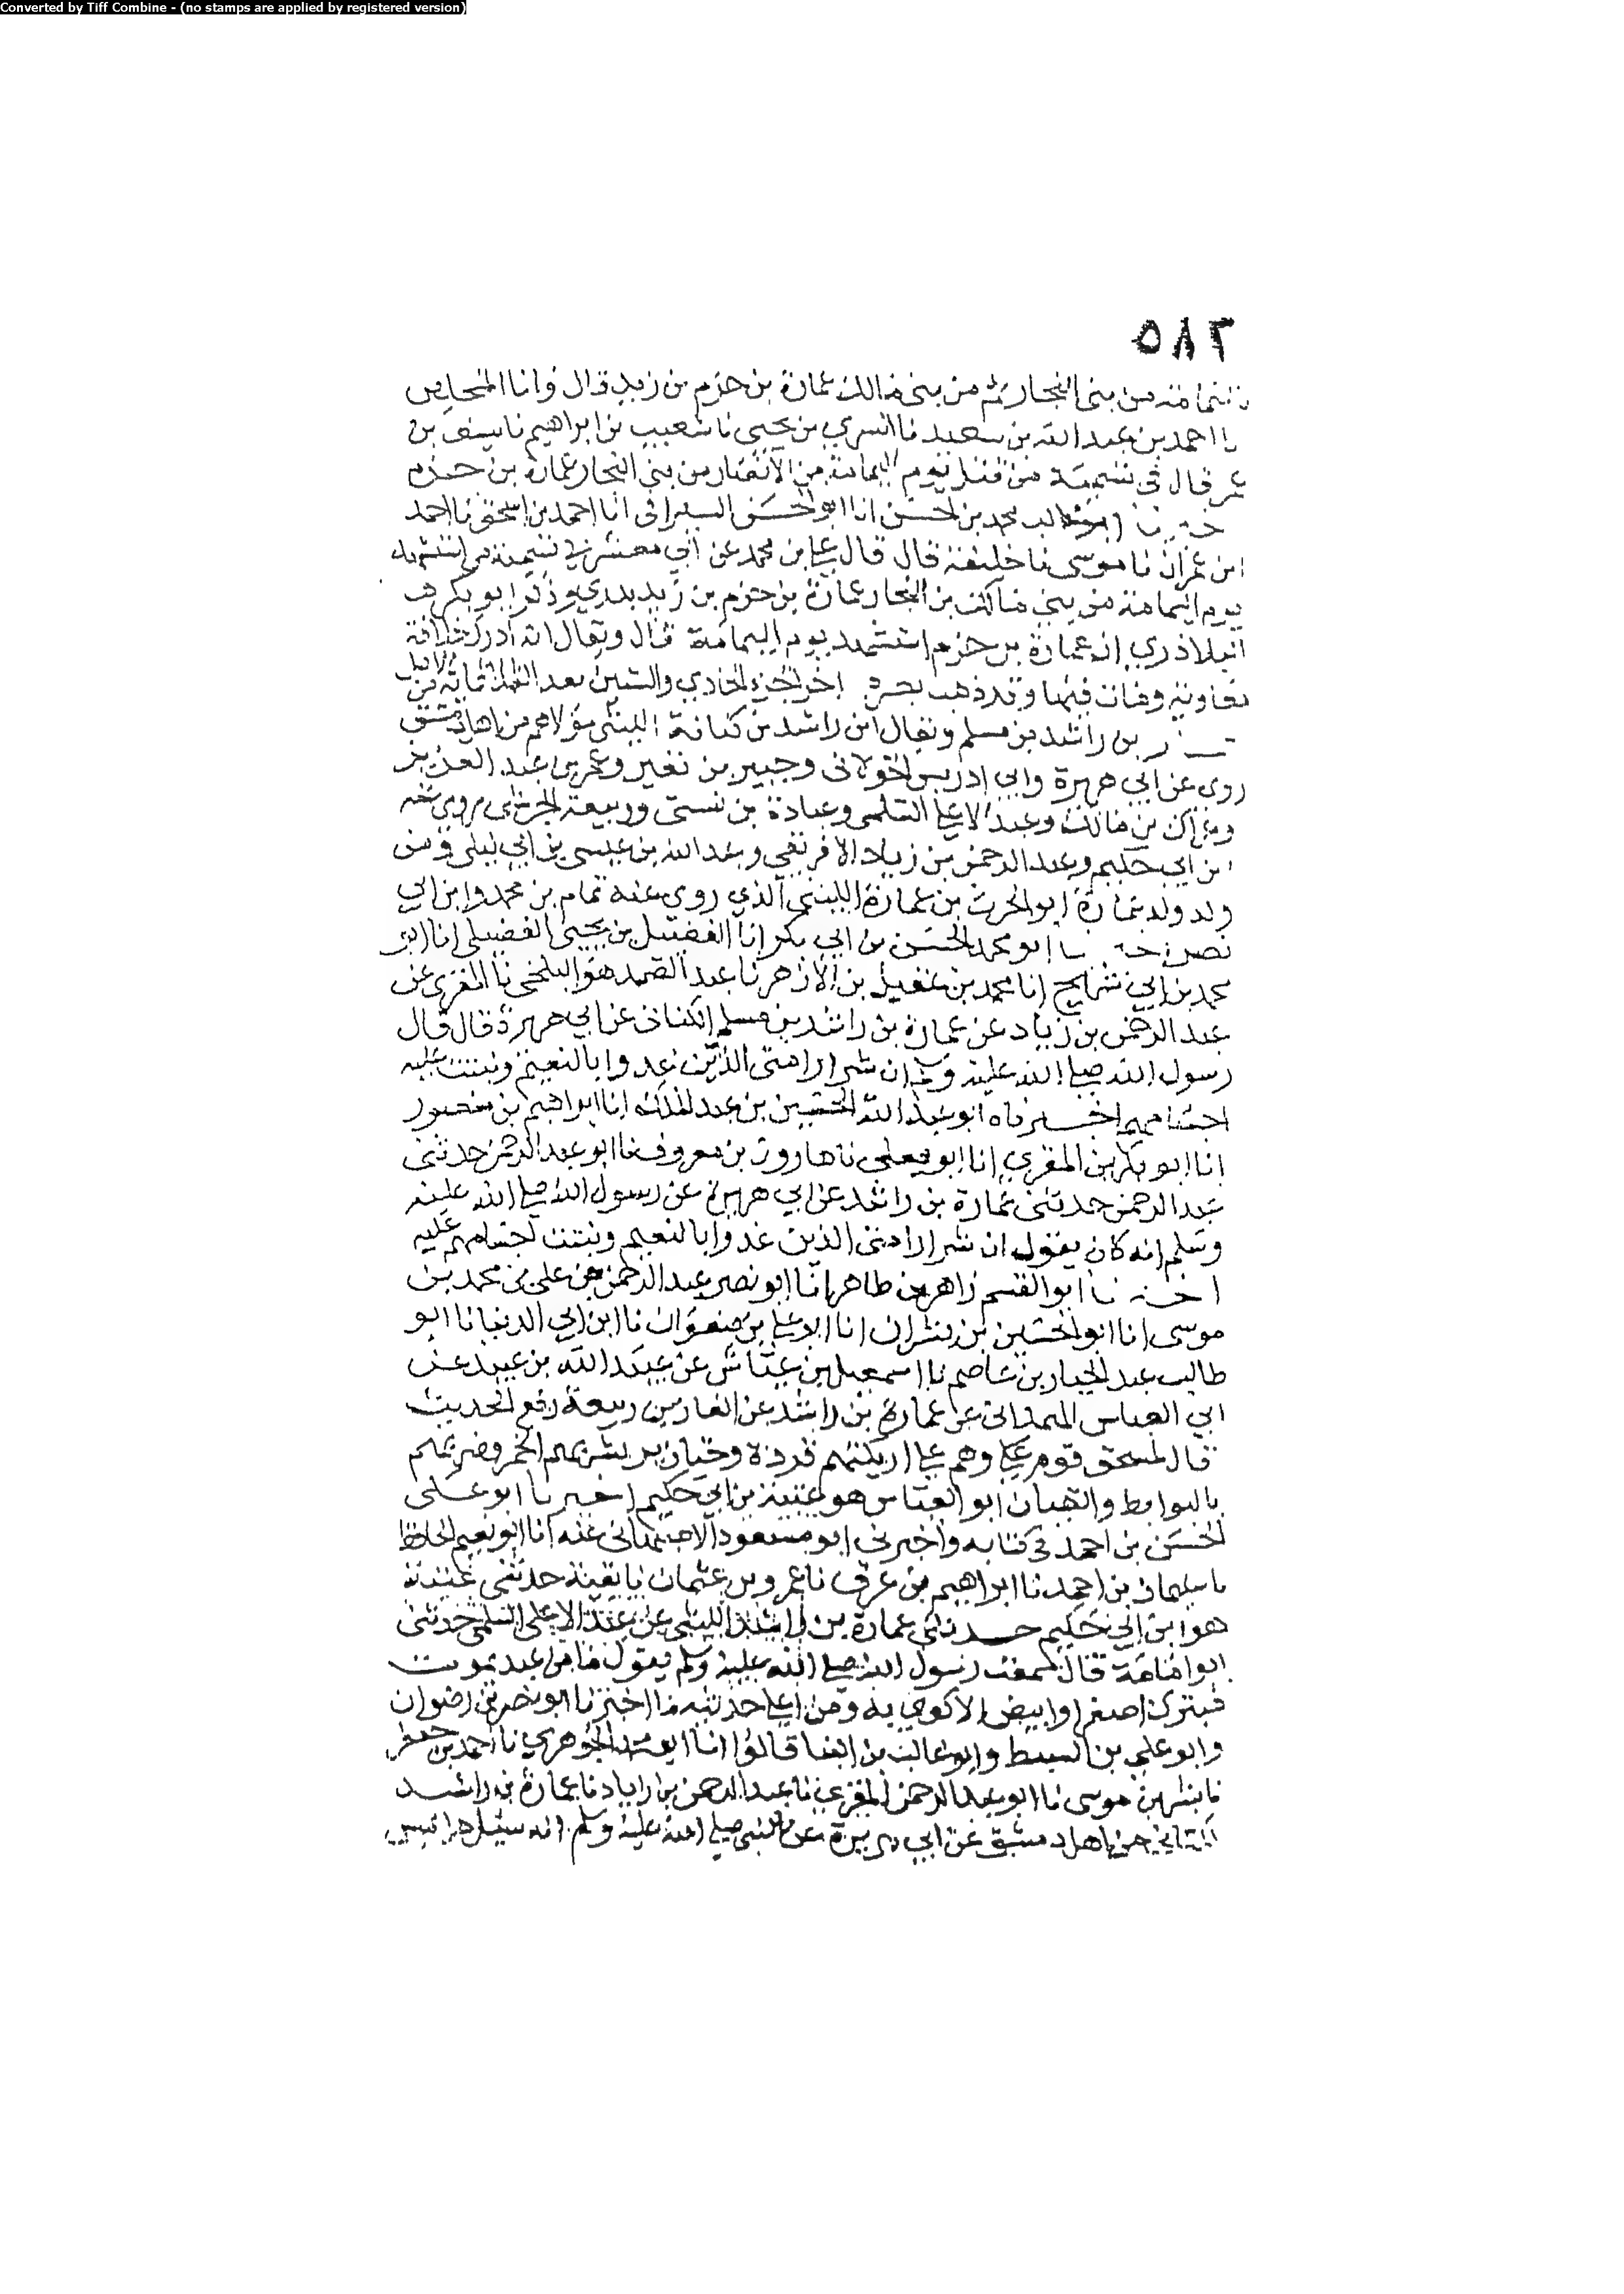 Converted by Tiff Combine - (no stamps are applied by registered version)
٥٨٢
من بني النجار ثم من بني مالك عمارة بن حزم بن زيد قال وانا المخلص
احمد بن عبد الله بن سعيد نا السري بن يحيى نا شعيب بن ابراهيم نا سيف بن
عمر قال في تسمية من قتل يوم اليمامة من الانصار من بني النجار عمارة بن حزم
محمد بن الحسن انا ابو الحسن السيرافي انا احمد بن اسحق نا احمد
ابن عمران نا موسى نا خليفة قال قال علي بن محمد عن ابي معشر في تسمية من استشهد
يوم اليمامة من بني مالك بن النجار عمارة بن حزم بن زيد بدري وذكر ابو بكر
البلاذري ان عمارة بن حزم استشهد يوم اليمامة قال ويقال انه ادرك خلافة
معاوية ومات فيها وقد ذهب بصره اخر الجزء الحادي والستين بعد الثلاثمائة من
بن راشد بن مسلم ويقال ابن راشد بن كنانة الليثي مولاهم من اهل دمشق
روى عن ابي هريرة وابي ادريس الخولاني وجبير بن نفير وعمر بن عبد العزيز
بن مالك وعبد الاعلى السلمي وعبادة بن نسي وربيعة الجرشي روى عنه
ابن ابي حكيم وعبد الرحمن بن زياد الافريقي وعبد الله بن عيسى بن ابي ليلى ومن
ولد ولد عمارة ابو الحرث بن عمارة الليثي الذي روى عنه تمام بن محمد وابن ابي
نصر ابو محمد الحسن بن ابي بكر انا الفضيل بن يحيى الفضيلي انا ابو
محمد بن ابي شريح انا محمد بن عقيل بن الازهر نا عبد الصمد هو البلخي نا المقري عن
عبد الرحمن بن زياد عن عمارة بن راشد بن مسلم الكناني عن ابي هريرة قال قال
رسول الله صلى الله عليه وسلم ان شرار امتي الذين غدوا بالنعيم ونبتت عليه
اجسامهم اخبرناه ابو عبد الله الحسين بن عبد الملك انا ابراهيم بن منصور
انا ابو بكر بن المقري انا ابو يعلى نا هارون بن معروف نا ابو عبد الرحمن حدثني
عبد الرحمن حدثني عمارة بن راشد عن ابي هريرة عن رسول الله صلى الله عليه
وسلم انه كان يقول ان شرار امتي الذين غدوا بالنعيم ونبتت اجسامهم عليه
اخبرنا ابو القسم زاهر بن طاهر انا ابو نصر عبد الرحمن بن علي بن محمد بن
موسى انا ابو الحسين بن بشران انا ابو علي بن صفوان نا ابن ابي الدنيا نا ابو
طالب عبد الجبار بن عاصم نا اسمعيل بن عياش عن عبيد الله بن عبيد عن
ابي العباس الهمداني عن عمارة بن راشد عن الغاز بن ربيعة رفع الحديث
قال ليمسخن قوم وهم على اريكتهم قردة وخنازير بشربهم الخمر وضربهم
بالبرابط والقيان ابو العباس هو عتبة بن ابي حكيم اخبرنا ابو علي
الحسن بن احمد في كتابه واخبرني ابو مسعود الاصبهاني عنه انا ابو نعيم الحافظ
نا سليمان بن احمد نا ابراهيم بن عرق نا عمرو بن عثمان نا بقية حدثني عتبة
هو ابن ابي حكيم حدثني عمارة بن راشد الليثي عن عبد الاعلى السلمي حدثني
ابو امامة قال سمعت رسول الله صلى الله عليه وسلم يقول ما من عبد يموت
فيترك اصفر او ابيض الا كوي به ومن اعلى حديثه ما اخبرنا ابو نصر بن رضوان
وابو علي بن السبط وابو غالب بن البنا قالوا انا ابو محمد الجوهري نا احمد بن جعفر
نا بشر بن موسى نا ابو عبد الرحمن المقري نا عبد الرحمن بن زياد نا عمارة بن راشد
الكناني من اهل دمشق عن ابي هريرة عن النبي صلى الله عليه وسلم انه سئل هل